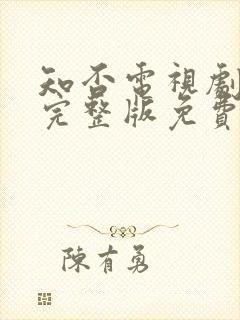 知否電視劇
完整版免費
陳有勇